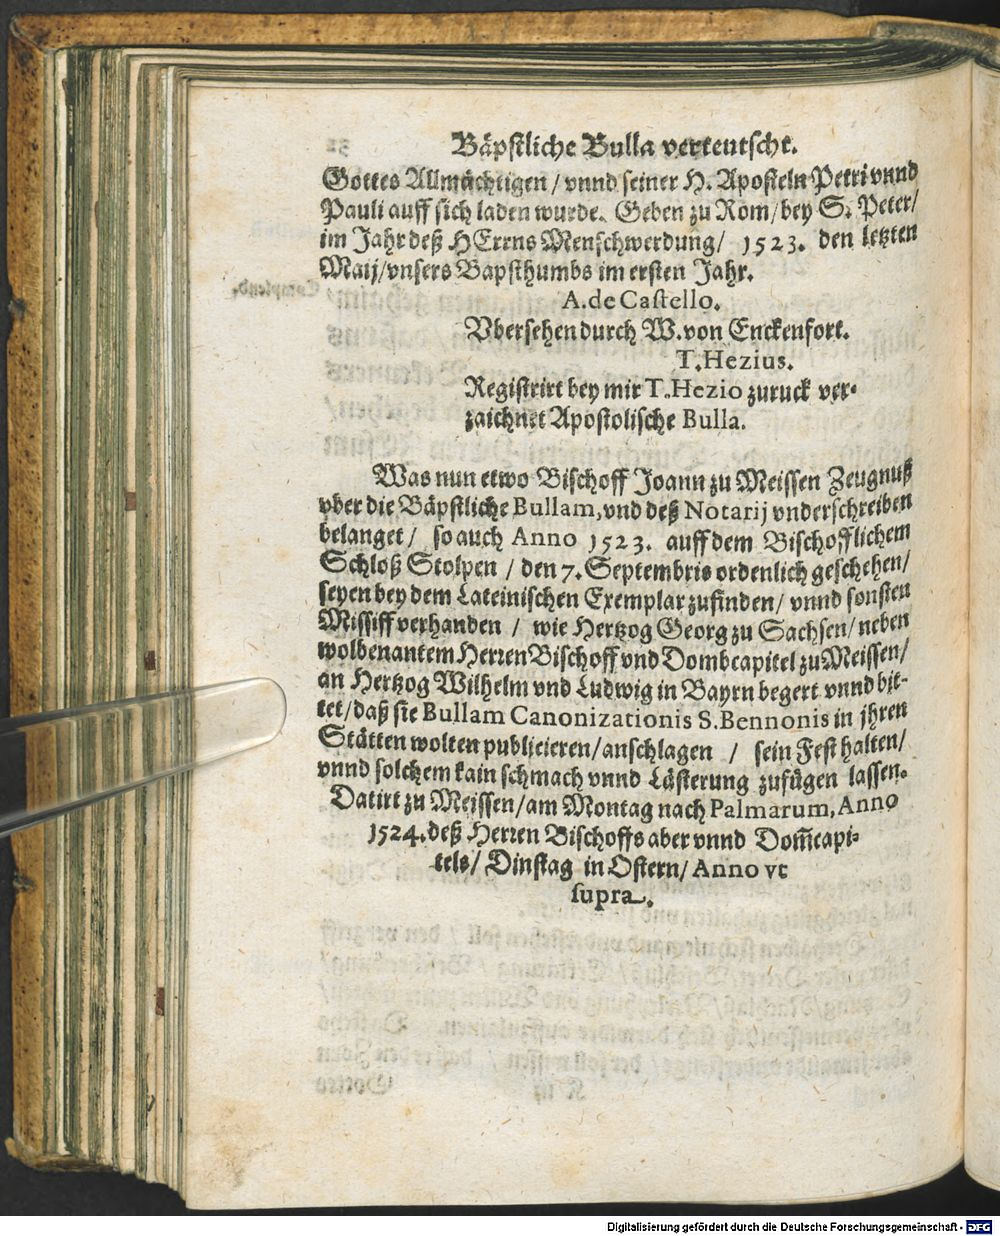 Bäpstliche Bulla verteutscht.
Gottes Allmächtigen / vnnd seiner H. Aposteln Petri vnnd
Pauli auff sich laden wurde. Geben zu Rom / bey S. Peter /
im Jahr deß HErrns Menschwerdung / 1523. den letzten
Maij / vnsers Bapsthumbs im ersten Jahr.
A. de Castello.
Vbersehen durch W. von Enckenfort.
T. Hezius.
Registrirt bey mir T. Hezio zuruck ver-
zaichnet Apostolische Bulla.
Was nun etwo Bischoff Joann zu Meissen Zeugnuß
vber die Bäpstliche Bullam, vnd deß Notarij vnderschreiben
belanget / so auch Anno 1523. auff dem Bischofflichem
Schloß Stolpen / den 7. Septembris ordenlich geschehen /
seyen bey dem Lateinischen Exemplar zufinden / vnnd sonsten
Missiff verhanden / wie Hertzog Georg zu Sachsen / neben
wolbenantem Herren Bischoff vnd Dombcapitel zu Meissen /
an Hertzog Wilhelm vnd Ludwig in Bayrn begert vnnd bit-
tet / daß sie Bullam Canonizationis S. Bennonis in jhren
Stätten wolten publicieren / anschlagen / sein Fest halten /
vnnd solchem kain schmach vnnd Lästerung zufügen lassen.
Datirt zu Meissen / am Montag nach Palmarum, Anno
1524. deß Herren Bischoffs aber vnnd Dom̃capi-
tels / Dinstag in Ostern / Anno vt
supra.
Digitalisierung gefördert durch die Deutsche Forschungsgemeinschaft - DFG